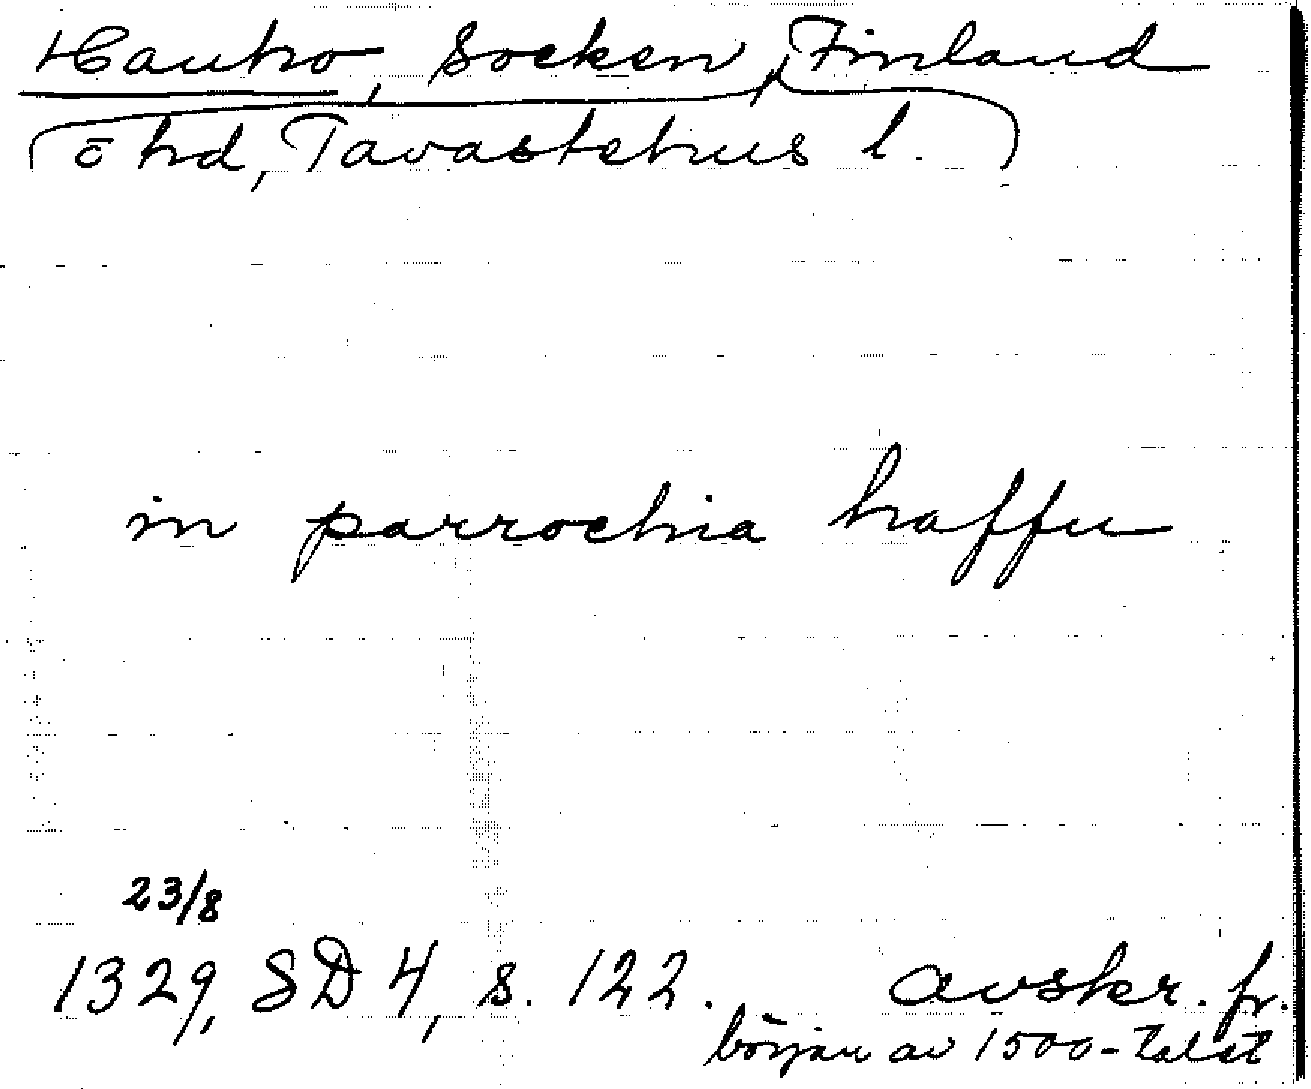 Hauho, Socken, Finland
ō hd, Tavastehus l.
in parrochia haffu
23/8
1329, SD 4, s. 122. avskr. fr.
början av 1500-talet